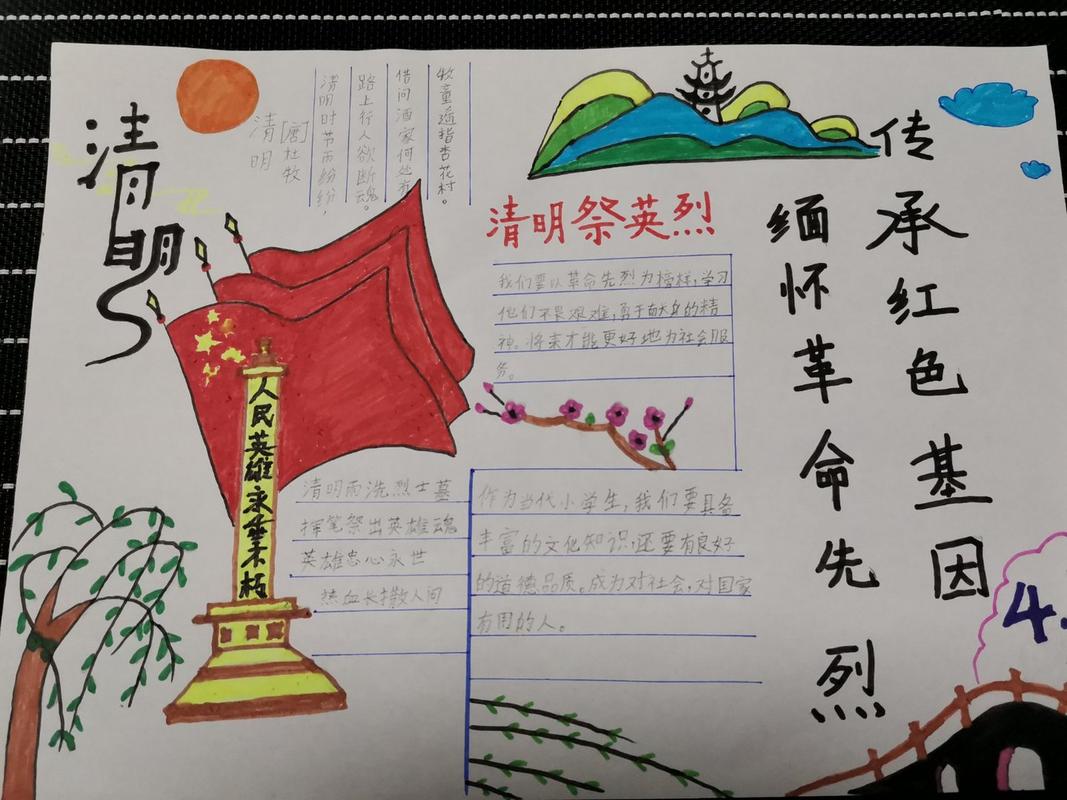 清明
清明
[唐]杜牧
清明时节雨纷纷，
路上行人欲断魂。
借问酒家何处有
牧童遥指杏花村。
清明祭英烈
我们要以革命先烈为榜样，学习
他们不畏艰难，勇于献身的精
神。将来才能更好地为社会服
务。
传承红色基因
缅怀革命先烈
人民英雄永垂不朽
清明雨洗烈士墓
挥笔祭出英雄魂
英雄忠心永世
热血长撒人间
作为当代小学生，我们要具备
丰富的文化知识，还要有良好
的道德品质。成为对社会，对国家
有用的人。
4.